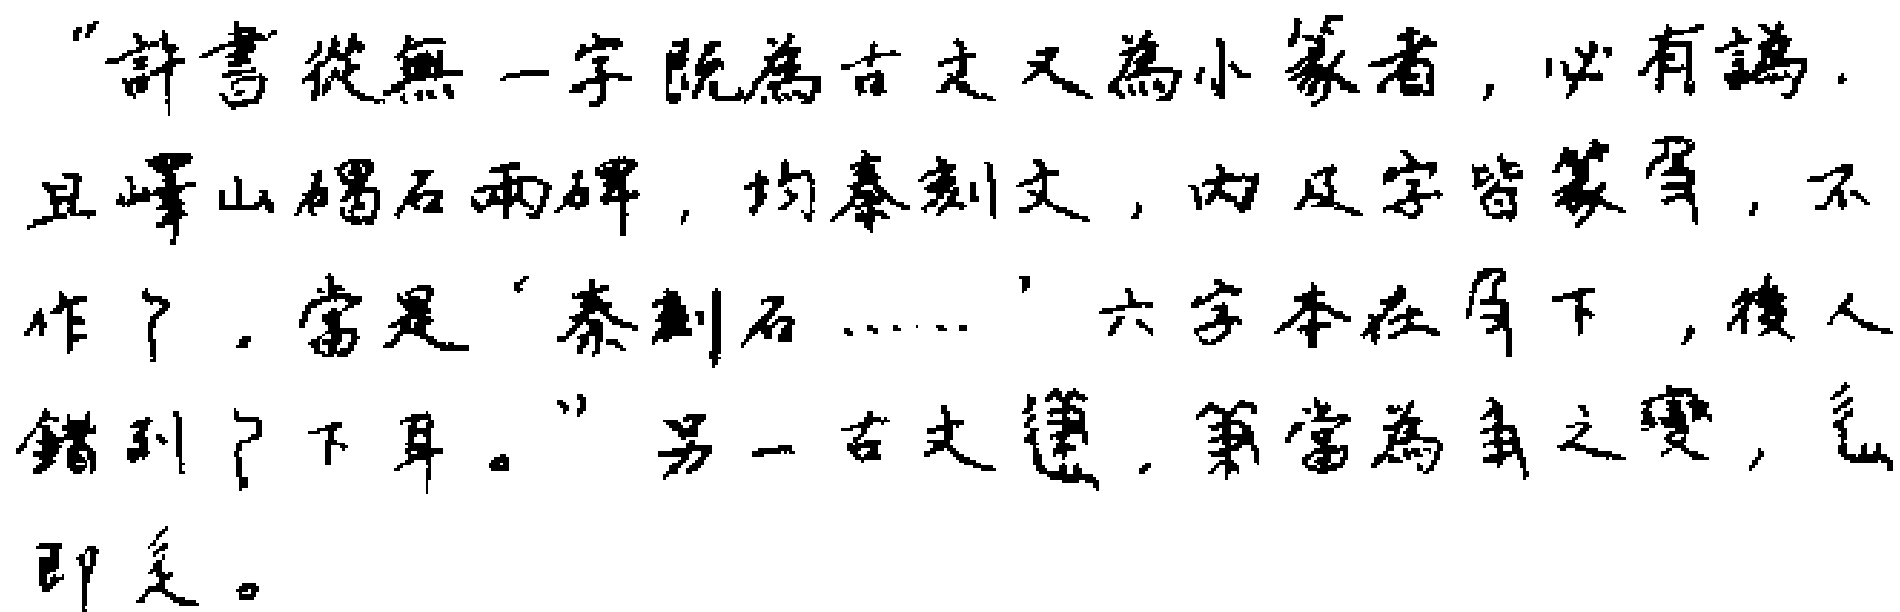 “許書從無一字既為古文又為小篆者，必有譌．
且嶧山碣石兩碑，均秦刻文，內及字皆篆，不
作．當是‘秦刻石……’六字本在下，後人
錯到下耳。”另一古文，當為之變，
即辵。